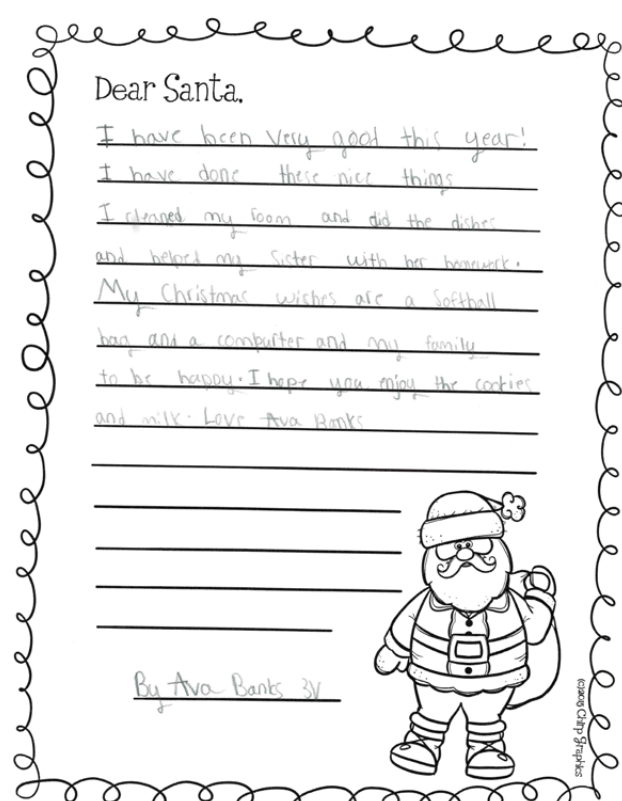 Dear Santa,
I have been very good this year!
I have done these nice things
I cleaned my room and did the dishes
and helped my Sister with her homework.
My Christmas wishes are a Softball
bag and a compurter and my family
to be happy. I hope you enjoy the cookies
and milk. Love Ava Banks
By Ava Banks 3V
(c)2015 Chirp Graphics